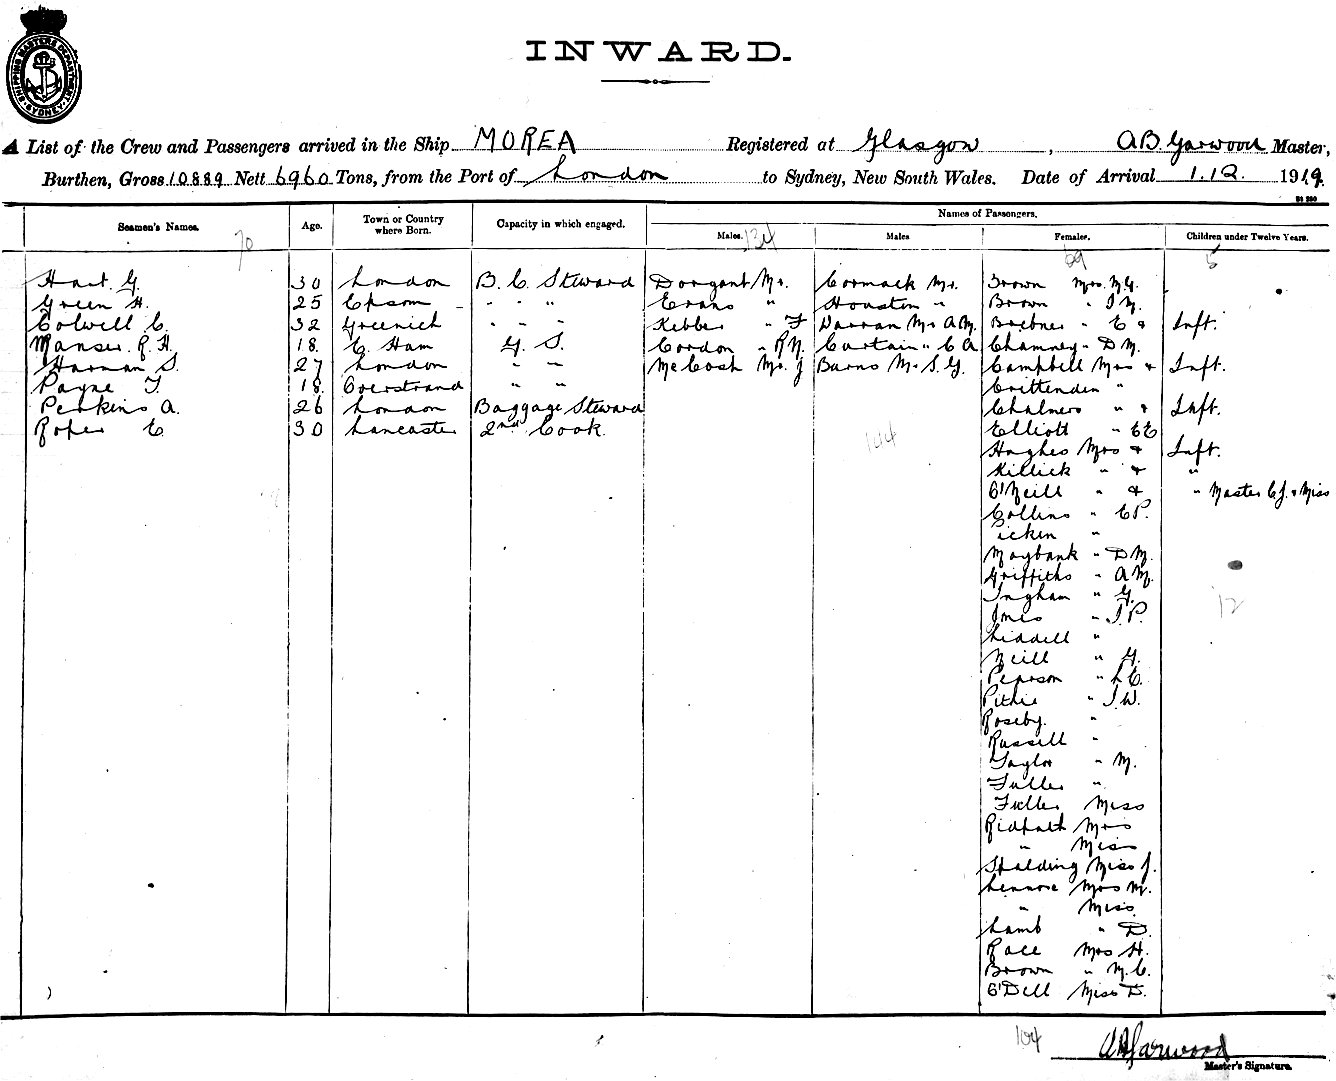 SHIPPING MASTERS DEPARTMENT SYDNEY
INWARD.
A List of the Crew and Passengers arrived in the Ship MOREA Registered at Glasgow, A B Garwood Master,
Burthen, Gross 10889 Nett 6960 Tons, from the Port of London to Sydney, New South Wales. Date of Arrival 1.12. 1919.
Names of Passengers.
Seamen's Names. Age. Town or Country where Born. Capacity in which engaged. Males. Males Females. Children under Twelve Years.
70 134 69 5
Hart G. 30 London B. C. Steward Dorgant Mr. Cormack Mr. Brown Mrs. M.G.
Green H. 25 Epsom " " " Evans " Houston " Brown " I M.
Colwell C. 32 Greenich " " " Kebber " F Darran Mr A M. Brebner " E & Inft.
Manser R. H. 18. E Ham G. S. Gordon " R N. Curtain " C A Chamney " D M.
Harman S. 27 London " " McCosh Mr. J Burns Mr S. G. Campbell Mrs & Inft.
Payne F. 18. Overstrand " " Crittenden "
Perkins A. 26 London Baggage Steward Chalmers " & Inft.
Roper E 30 Lancaster 2nd Cook. Elliott " EE
144
Hughes Mrs & Inft.
Killick " & "
O'Neill " & " Master C J. & Miss
Collins " C P.
icken "
Maybank " D M.
Griffiths " A M.
Ingham " G.
12
Innes " J. P.
Liddell "
Neill " G.
Pearson " L E.
Pithie " J. W.
Roseby. "
Russell "
Taylor " M.
Fuller "
Fuller Miss
Ridpath Mrs
" Miss
Spalding Miss J.
Lennox Mrs M.
" Miss
Lamb " D.
Race Mrs H.
Brown " M. C.
O'Dell Miss D.
104
A B Garwood
Master's Signature.